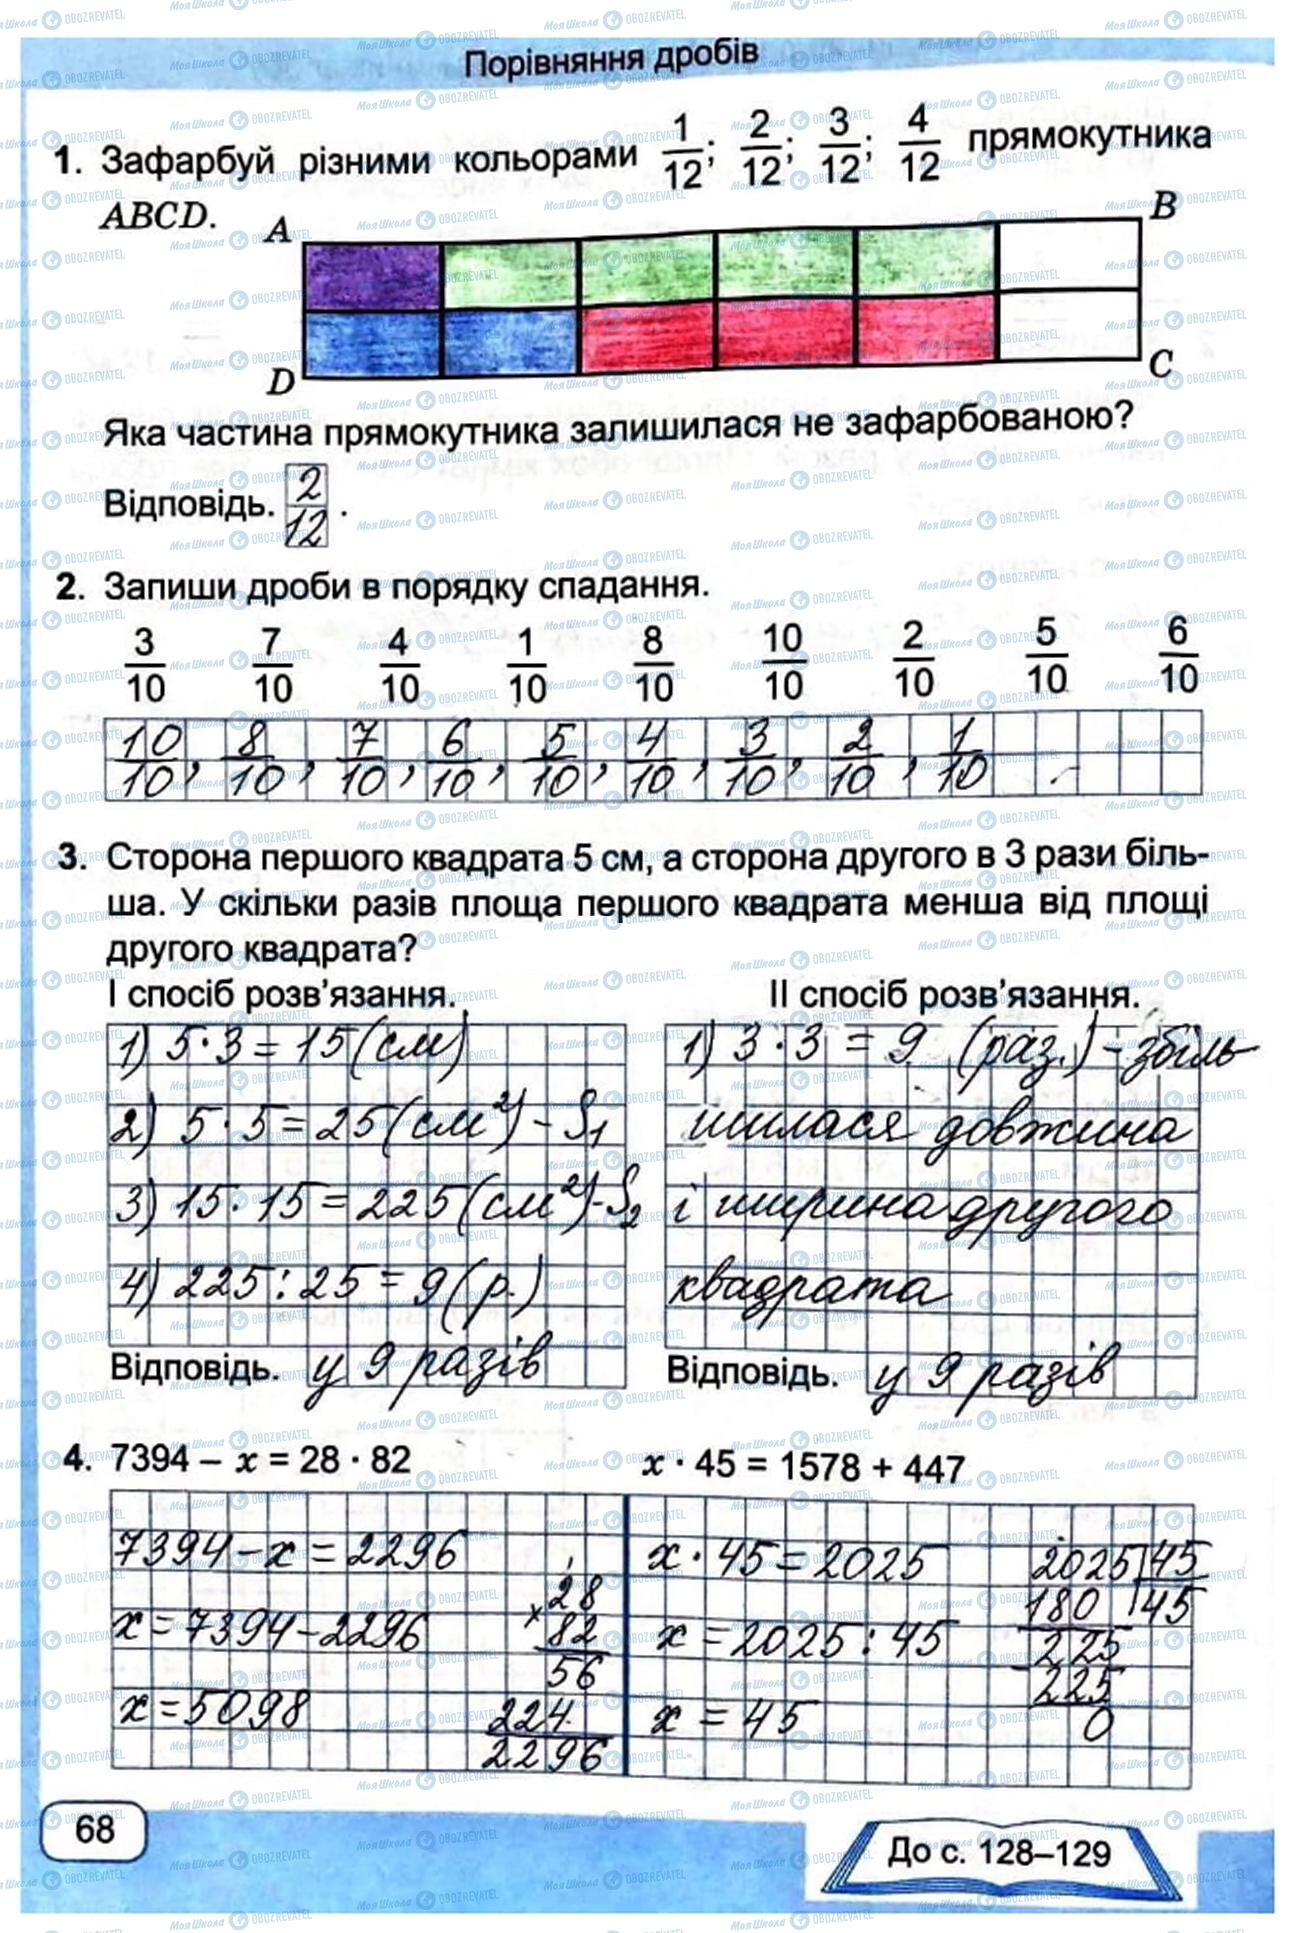 Порівняння дробів
1. Зафарбуй різними кольорами 1/12; 2/12; 3/12; 4/12 прямокутника
ABCD.
A
B
D
C
Яка частина прямокутника залишилася не зафарбованою?
Відповідь. 2/12.
2. Запиши дроби в порядку спадання.
3/10 7/10 4/10 1/10 8/10 10/10 2/10 5/10 6/10
10/10, 8/10, 7/10, 6/10, 5/10, 4/10, 3/10, 2/10, 1/10
3. Сторона першого квадрата 5 см, а сторона другого в 3 рази біль-
ша. У скільки разів площа першого квадрата менша від площі
другого квадрата?
І спосіб розв'язання.
1) 5·3=15(см)
2) 5·5=25(см²)-S₁
3) 15·15=225(см²)-S₂
4) 225:25=9(р.)
Відповідь. у 9 разів
ІІ спосіб розв'язання.
1) 3·3=9 (раз.)-збіль
шилася довжина
і ширина другого
квадрата
Відповідь. у 9 разів
4. 7394 – x = 28 · 82
7394-x=2296
x=7394-2296
x=5098
1
28
× 82
56
224
2296
x · 45 = 1578 + 447
x·45=2025
x=2025:45
x=45
2025 45
180 45
225
225
0
68
До с. 128–129
Моя Школа OBOZREVATEL